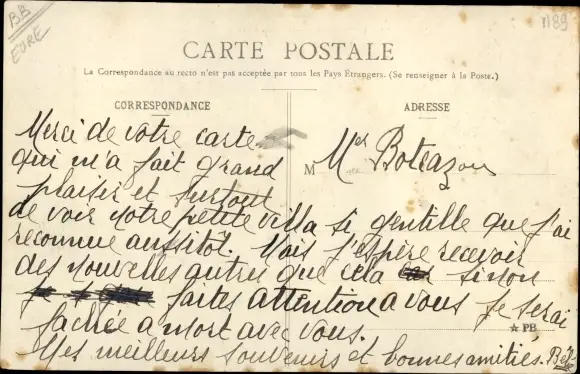 BB
EURE
1189
CARTE POSTALE
La Correspondance au recto n'est pas acceptée par tous les Pays Étrangers. (Se renseigner à la Poste.)
CORRESPONDANCE
ADRESSE
Merci de votre carte
qui m'a fait grand
plaisir et surtout
M
de voir notre petite villa si gentille que j'ai
reconnue aussitôt. Mais j'espère recevoir
des nouvelles autres que cela sinon
faites attention a vous je serai
fachée a mort avec vous.
★ PB
Mes meilleurs souvenirs et bonnes amitiés.